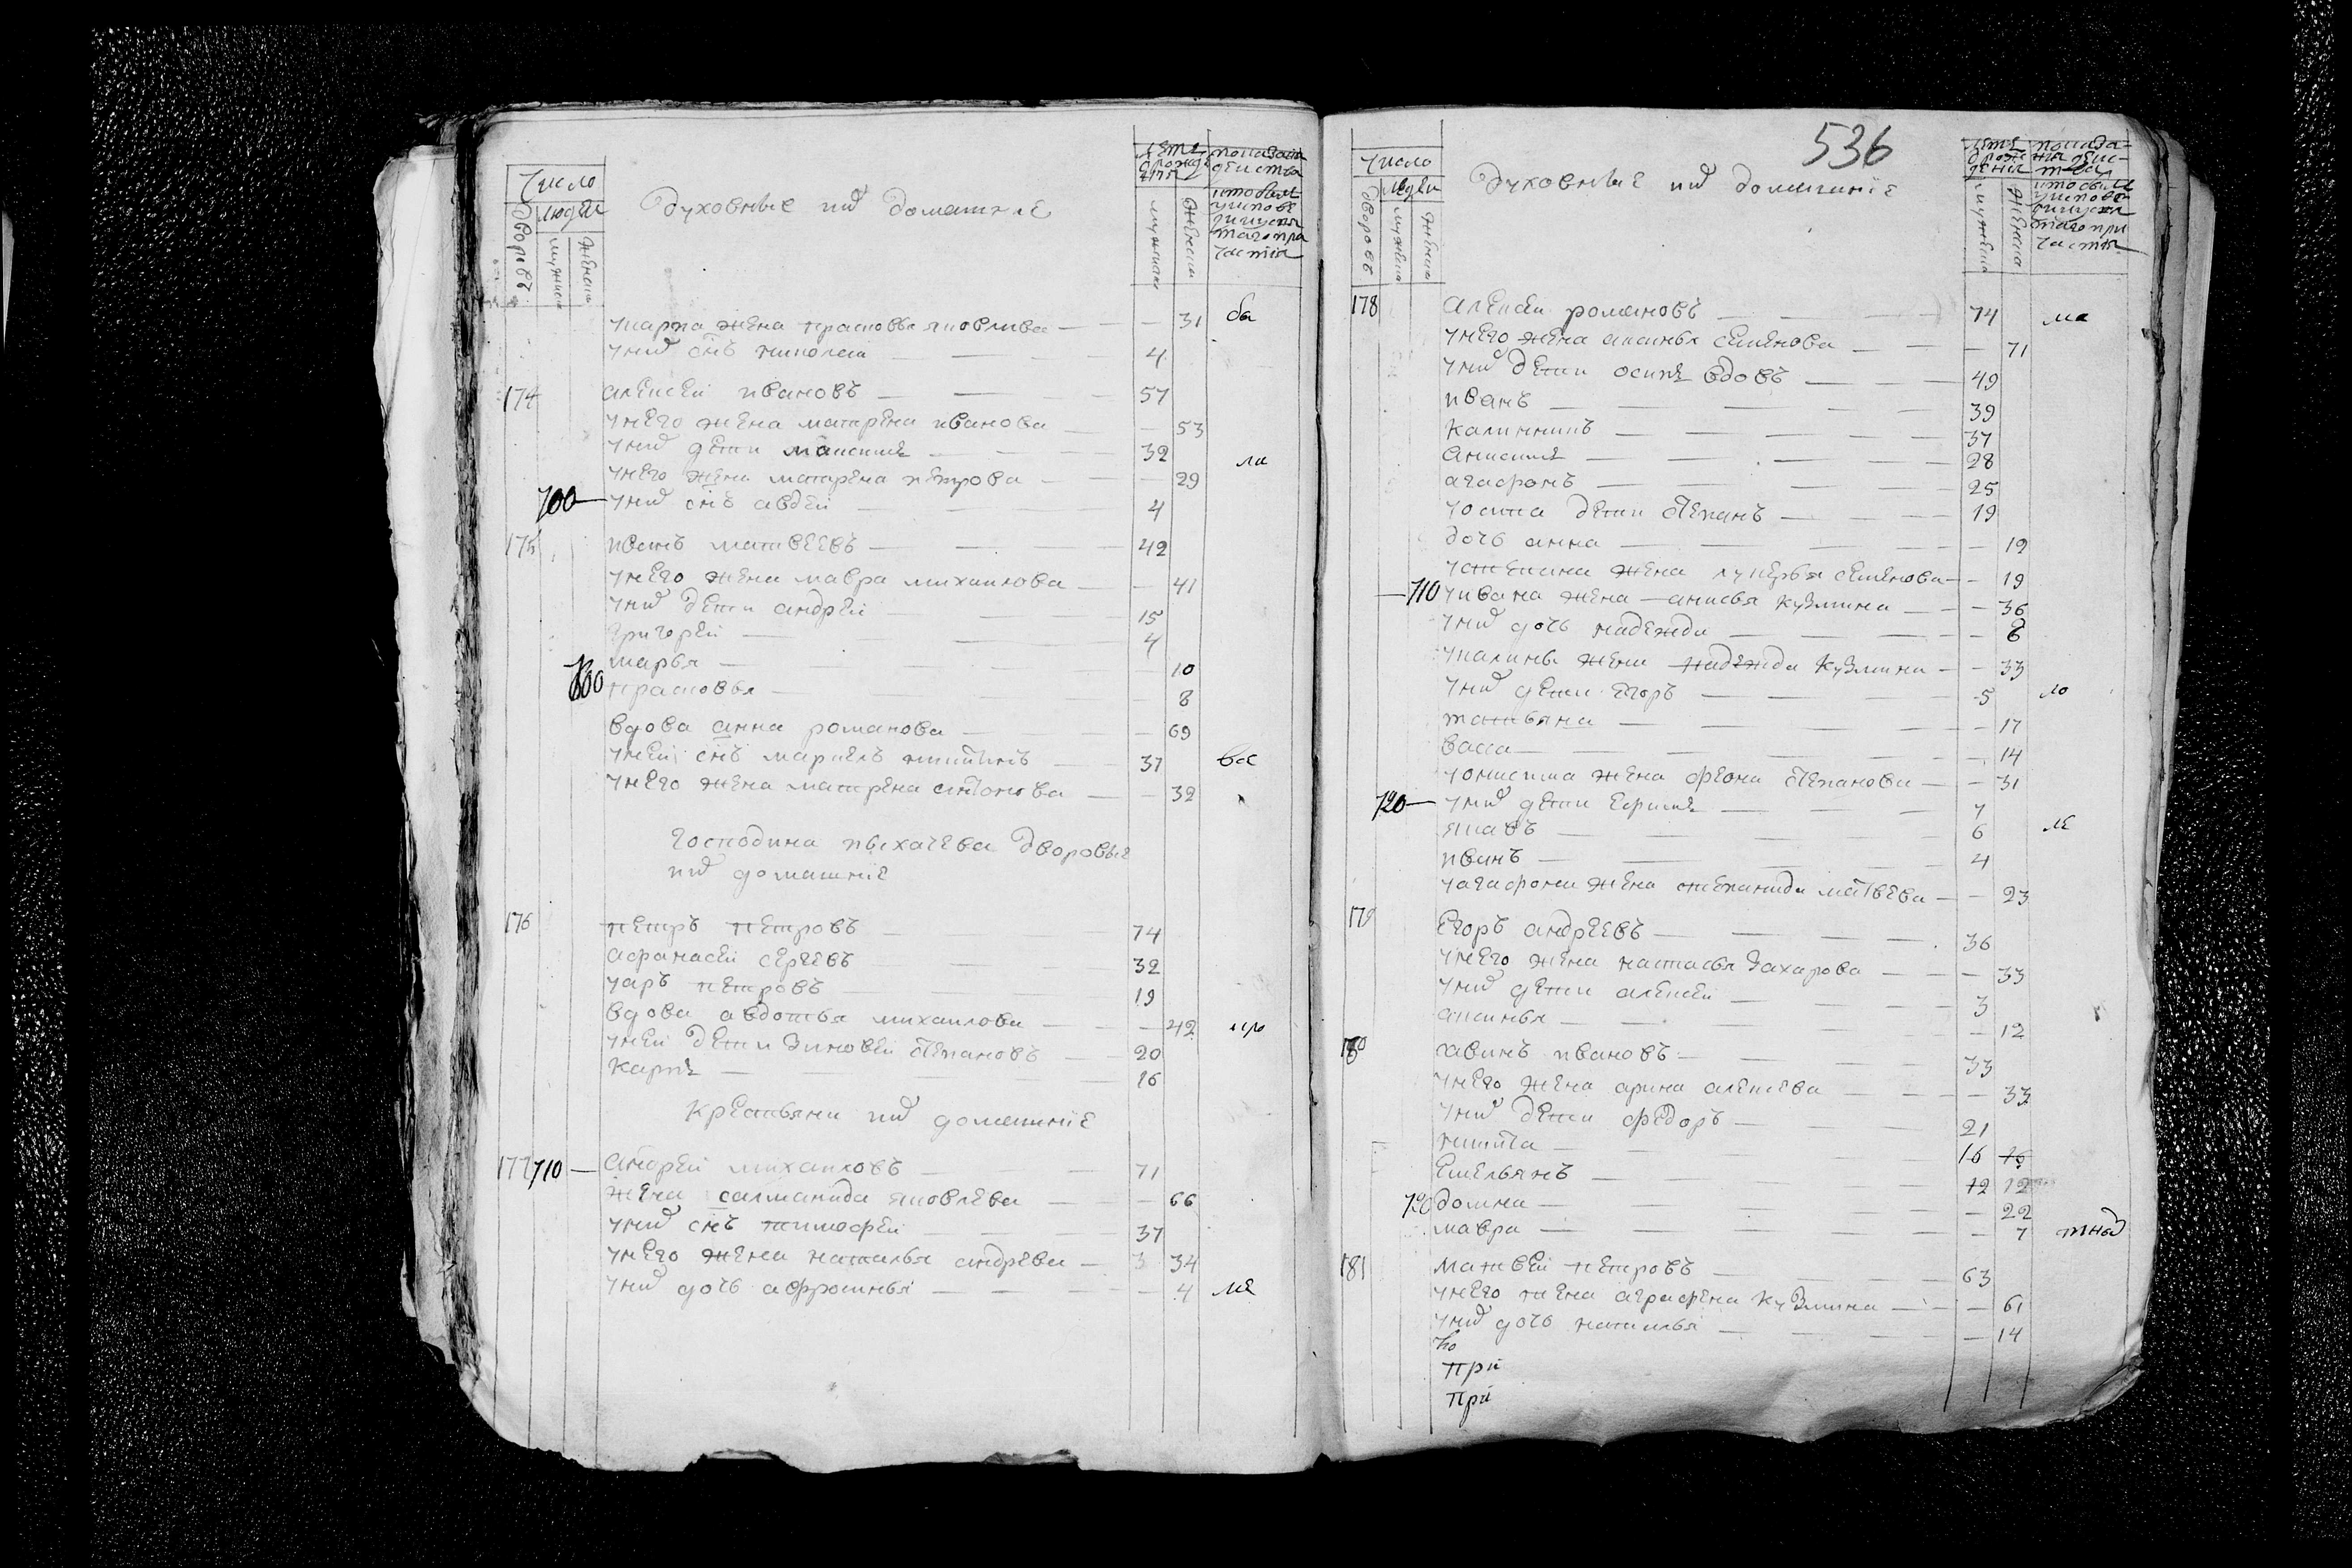 Число
дворовъ
людей
мужеска
женска
духовные ихъ домашние
лета от рождения
мужеска
женска
показание действа
кто был у исповеди и святого причастия
укарпа жена прасковья яковлева — 31 бы
у них снъ николай — 4
174 алексей ивановъ — 57
у него жена матрена иванова — 53
у них дети максимъ — 32
ла
у него жена матрена петрова — 29
700 — у них снъ авдей — 4
175 иванъ матвеевъ — 42
у него жена мавра михаилова — 41
у них дети андрей — 15
григорей — 4
марья — 10
800 прасковья — 8
вдова анна романова — 69
у ней снъ маркелъ никитинъ — 37 всс
у него жена матрена антонова — 32
господина пыхачева дворовые
их домашние
176 петръ петровъ — 74
афанасей сергеевъ — 32
уаръ петровъ — 19
вдова авдотья михаилова — 42
у ней дети зиновей степановъ — 20
карпъ — 16
крестьяни их домашние
177 710 — андрей михаиловъ — 71
жена саламанида яковлева — 66
у них снъ тимофей — 37
у него жена наталья андреева — 3 34
у них дочь афросинья — 4 ле
536
Число
дворовъ
людей
мужеска
женска
духовные их домашние
лета от рождения
мужеска
женска
показания действа
кто был у исповеди и святого причастия
178 алексей романовъ — 74 ма
у него жена аксинья семенова — 71
у них дети осипъ вдовъ — 49
иванъ — 39
калинникъ — 37
анисимъ — 28
агафонъ — 25
уосипа дети степанъ — 19
дочь анна — 12
устепана жена лукерья семенова — 19
710 уивана жена анисья кузмина — 36
у них дочь надежда — 8
укалины жена надежда кузмина — 33
у них дети егоръ — 5 ло
татьяна — 17
васса — 14
уонисима жена фекла степанова — 31
720 — у них дети ефимъ — 7
яковъ — 6 ле
иванъ — 4
уагафона жена степанида матвеева — 23
179 егоръ андреевъ — 36
у него жена настасья захарова — 33
у них дети алексей — 3
аксинья — 12
180 савинъ ивановъ — 33
у него жена арина алексеева — 33
у них дети федоръ — 21
никита — 16
емельянъ — 12 12
720 домна — 22
мавра — 7
181 матвей петровъ — 63
у него жена аграфена кузмина — 61
у них дочь наталья — 14
но
при
при